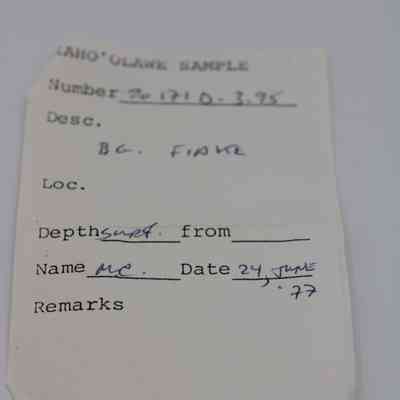 KAHO'OLAWE SAMPLE
Number 20 171 D. 3.95
Desc.
BG. FLAKE
Loc.
Depth surf. from
Name MC. Date 24, JUNE
'77
Remarks